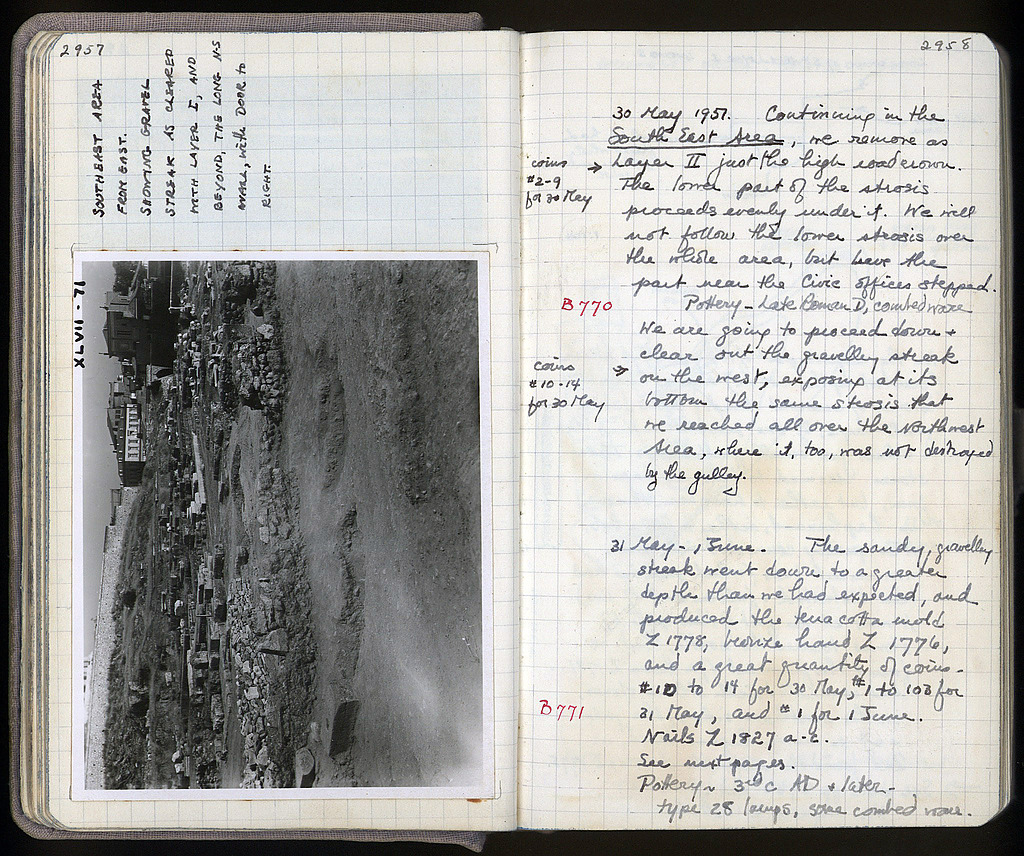 2957
SOUTHEAST AREA
FROM EAST.
SHOWING GRAVEL
STREAK AS CLEARED
WITH LAYER I, AND
BEYOND, THE LONG N-S
WALL, WITH DOOR TO
RIGHT.
XLVII - 71
2958
30 May 1957. Continuing in the
South East Area, we remove as
coins → Layer II just the high road crown.
#2-9 The lower part of the strosis
for 30 May proceeds evenly under it. We will
not follow the lower strosis over
the whole area, but leave the
part near the Civic offices stepped.
B770 Pottery - Late Roman D, combed ware
We are going to proceed down +
clear out the gravelley streak
coins → on the west, exposing at its
#10-14 bottom the same strosis that
for 30 May we reached all over the Northwest
Area, where it, too, was not destroyed
by the gulley.
31 May - 1 June. The sandy, gravelley
streak went down to a greater
depth than we had expected, and
produced the terra cotta mold
Z 1778, bronze hand Z 1776,
and a great quantity of coins -
#10 to 14 for 30 May, #1 to 108 for
B771 31 May, and #1 for 1 June.
Nails Z 1827 a-c.
See next pages.
Pottery ~ 3rd c AD + later -
type 28 lamps, some combed ware.